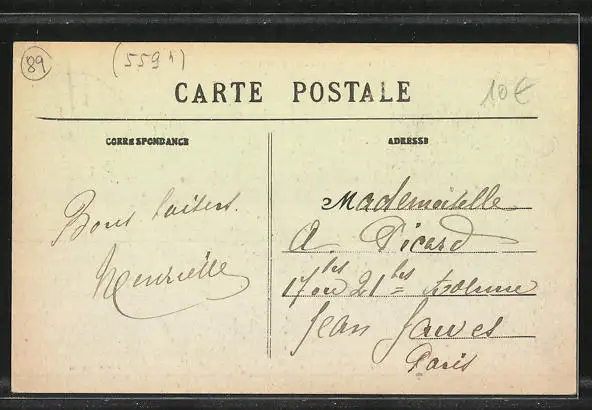 89
(559 h)
10€
CARTE POSTALE
CORRESPONDANCE
ADRESSE
Bons baisers.
Henriette
Mademoiselle
A. Picard
17 bis ou 21 bis Avenue
Jean Jaures
Paris